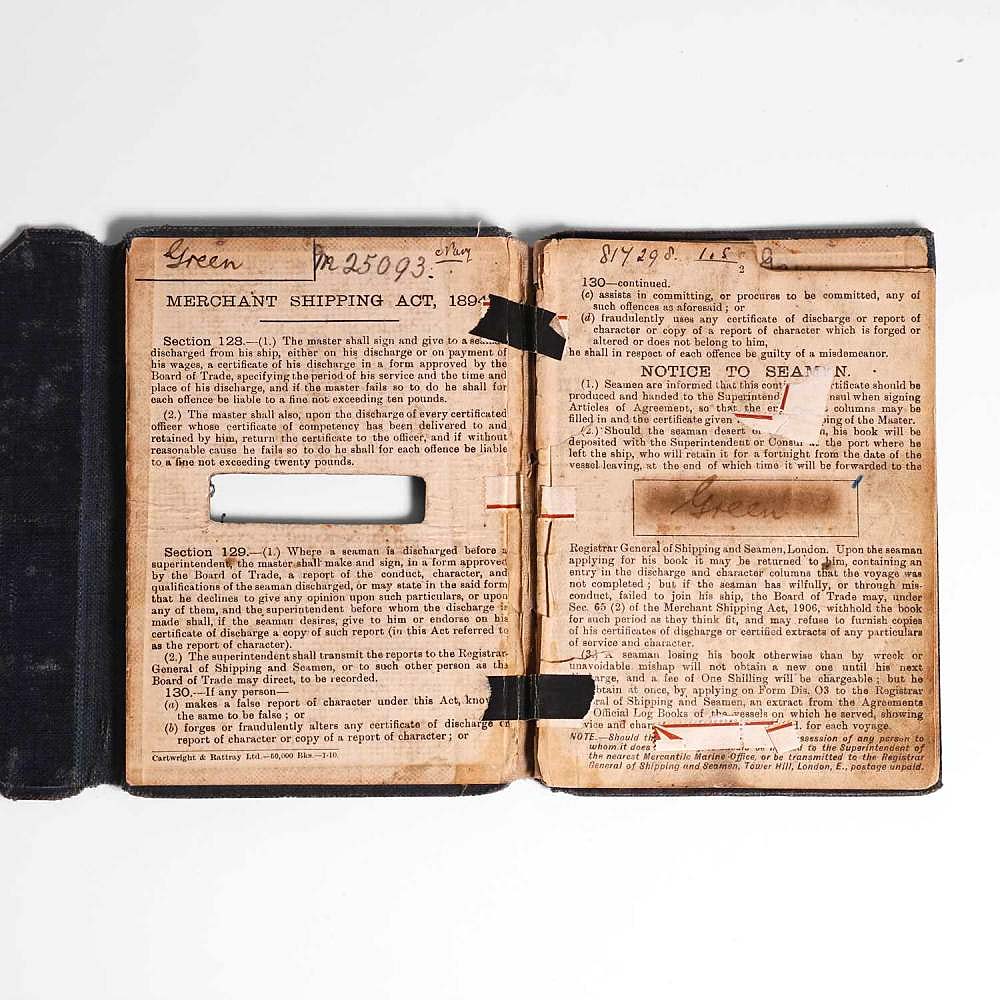 Green m 25093. Navy
MERCHANT SHIPPING ACT, 1894
Section 128.—(1.) The master shall sign and give to a
discharged from his ship, either on his discharge or on payment of
his wages, a certificate of his discharge in a form approved by the
Board of Trade, specifying the period of his service and the time and
place of his discharge, and if the master fails so to do he shall for
each offence be liable to a fine not exceeding ten pounds.
(2.) The master shall also, upon the discharge of every certificated
officer whose certificate of competency has been delivered to and
retained by him, return the certificate to the officer, and if without
reasonable cause he fails so to do he shall for each offence be liable
to a fine not exceeding twenty pounds.
Section 129.—(1.) Where a seaman is discharged before a
superintendent, the master shall make and sign, in a form approved
by the Board of Trade, a report of the conduct, character, and
qualifications of the seaman discharged, or may state in the said form
that he declines to give any opinion upon such particulars, or upon
any of them, and the superintendent before whom the discharge is
made shall, if the seaman desires, give to him or endorse on his
certificate of discharge a copy of such report (in this Act referred to
as the report of character).
(2.) The superintendent shall transmit the reports to the Registrar-
General of Shipping and Seamen, or to such other person as the
Board of Trade may direct, to be recorded.
130.—If any person—
(a) makes a false report of character under this Act,
the same to be false; or
(b) forges or fraudulently alters any certificate of discharge or
report of character or copy of a report of character; or
Cartwright & Rattray Ltd.—60,000 Bks.—1-10.
817298. 1.5 2
130—continued.
(c) assists in committing, or procures to be committed, any of
such offences as aforesaid; or
(d) fraudulently uses any certificate of discharge or report of
character or copy of a report of character which is forged or
altered or does not belong to him,
he shall in respect of each offence be guilty of a misdemeanor.
NOTICE TO SEAMEN.
(1.) Seamen are informed that this certificate should be
produced and handed to the when signing
Articles of Agreement, so that the columns may be
filled in and the certificate given of the Master.
(2.) Should the seaman desert his book will be
deposited with the Superintendent or Consul at the port where he
left the ship, who will retain it for a fortnight from the date of the
vessel leaving, at the end of which time it will be forwarded to the
Green
Registrar General of Shipping and Seamen, London. Upon the seaman
applying for his book it may be returned to him, containing an
entry in the discharge and character columns that the voyage was
not completed; but if the seaman has wilfully, or through mis-
conduct, failed to join his ship, the Board of Trade may, under
Sec. 65 (2) of the Merchant Shipping Act, 1906, withhold the book
for such period as they think fit, and may refuse to furnish copies
of his certificates of discharge or certified extracts of any particulars
of service and character.
(3.) A seaman losing his book otherwise than by wreck or
unavoidable mishap will not obtain a new one until his next
and a fee of One Shilling will be chargeable; but he
obtain at once, by applying on Form Dis. O3 to the Registrar
of Shipping and Seamen, an extract from the Agreements
Official Log Books of the vessels on which he served, showing
for each voyage.
NOTE.—Should of any person to
whom it does to the Superintendent of
the nearest Mercantile Marine Office, or be transmitted to the Registrar
General of Shipping and Seamen, Tower Hill, London, E., postage unpaid.